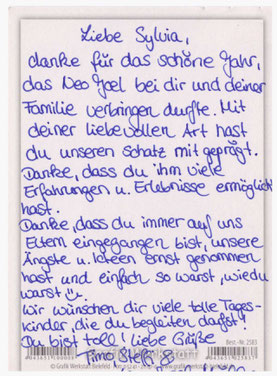 Liebe Sylvia,
danke für das schöne Jahr,
das Neo Joel bei dir und deiner
Familie verbringen durfte. Mit
deiner liebevollen Art hast
du unseren Schatz mit geprägt.
Danke, dass du ihm viele
Erfahrungen u. Erlebnisse ermöglicht
hast.
Danke, dass du immer auf uns
Eltern eingegangen bist, unsere
Ängste u. Ideen ernst genommen
hast und einfach so warst, wie du
warst
Wir wünschen dir viele tolle Tages-
kinder, die du begleiten darfst!
Du bist toll! Liebe Grüße
Best.-Nr. 2583
Timo